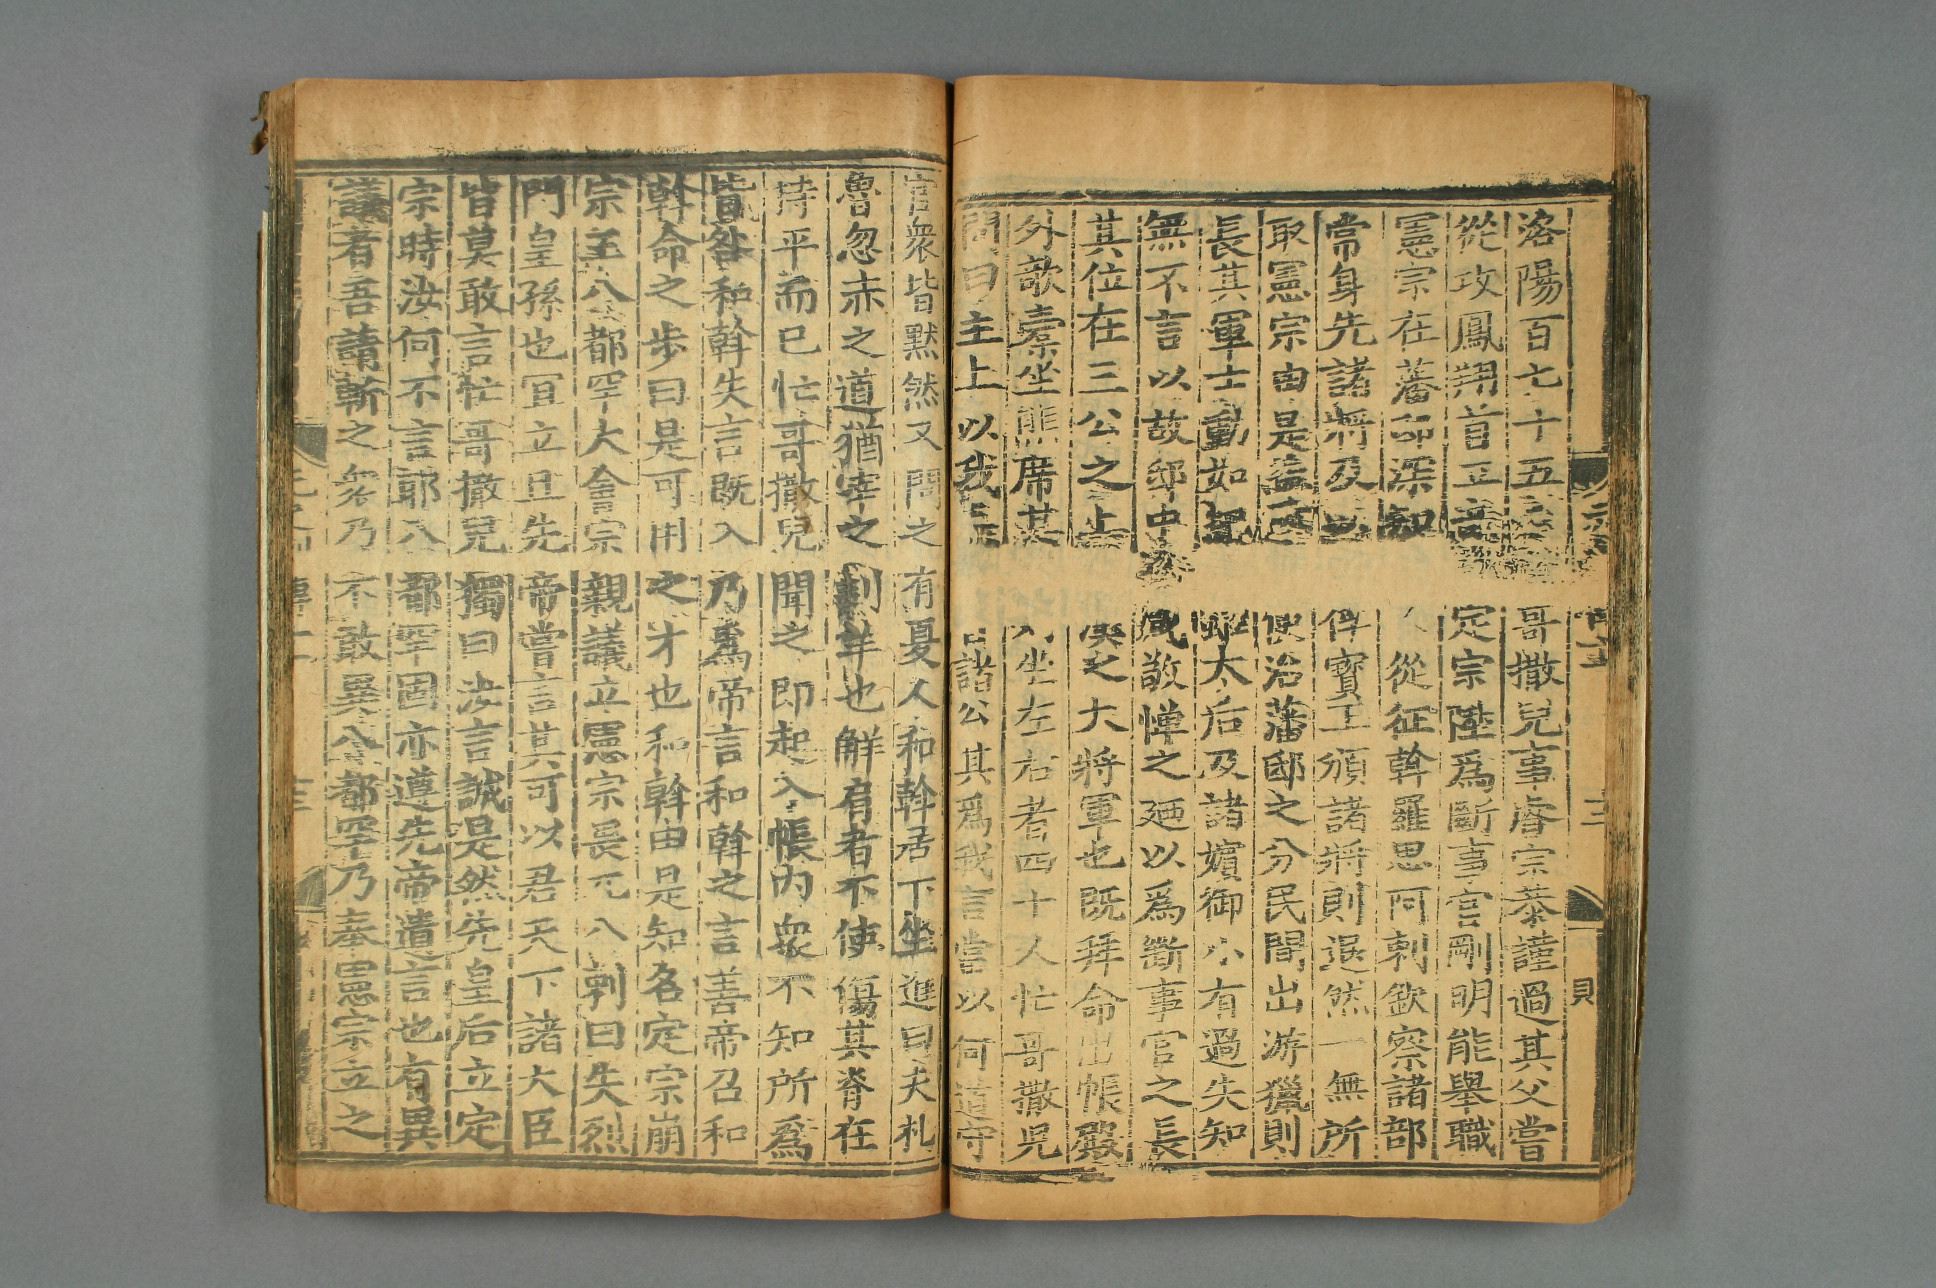 洛陽百七十五哥撒兒事睿宗恭謹過其父嘗
從攻鳳翔首定宗陞爲斷事官剛明能舉職
憲宗在藩邸深知從征斡羅思阿剌欽察諸部
常身先諸將及以俘寶玉頒諸將則退然一無所
取憲宗由是益使治藩邸之分民間出游獵則
長其軍士動如太后及諸嬪御小有過失知
無不言以故邸中咸敬憚之廼以爲斷事官之長
其位在三公之上之大將軍也既拜命出帳殿
外欹槖坐熊席其坐左右者四十人忙哥撒兒
問曰主上以我諸公其爲我言嘗以何道守
官衆皆默然又問之有夏人和斡居下坐進曰夫札
魯忽赤之道猶宰之刲羊也解肩者不使傷其脊在
持平而已忙哥撒兒聞之即起入帳內衆不知所爲
皆咎和斡失言既入乃爲帝言和斡之言善帝召和
斡命之步曰是可用之才也和斡由是知名定宗崩
宗王八都罕大會宗親議立憲宗畏兀八剌曰失烈
門皇孫也宜立且先帝嘗言其可以君天下諸大臣
皆莫敢言忙哥撒兒獨曰汝言誠是然先皇后立定
宗時汝何不言耶八都罕固亦遵先帝遺言也有異
議者吾請斬之衆乃不敢異八都罕乃奉憲宗立之